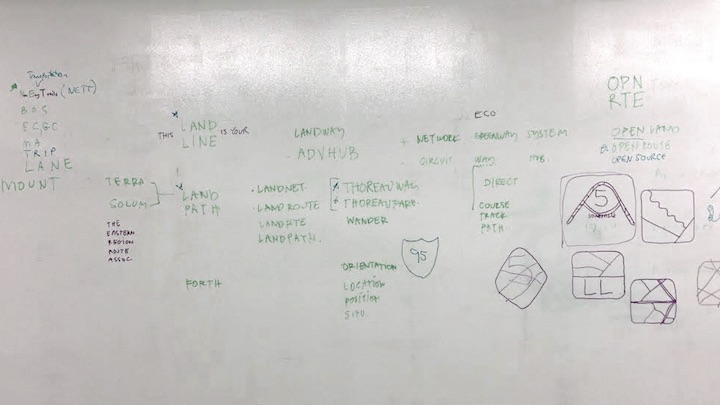 (NETT)
BOS
EC,GC
NA
TRIP
LANE
MOUNT
TERRA
SOLUM
THE
EASTERN
REGION
ROUTE
ASSOC
THIS LAND LINE IS YOUR
LAND
PATH
FORTH
LANDWAY
ADVHUB
· LANDNET
· LAND ROUTE
LANDRTE
LANDPATH.
THOREAU WAY
THOREAU PARK
WANDER
ORIENTATION
LOCATION
POSITION
SITU.
95
+ NETWORK
CIRCUIT
ECO
GREENWAY SYSTEM
WAY
DIRECT
COURSE
TRACK
PATH
OPN
RTE
OPEN LAND
OPEN ROUTE
OPEN SOURCE
5
5
LL